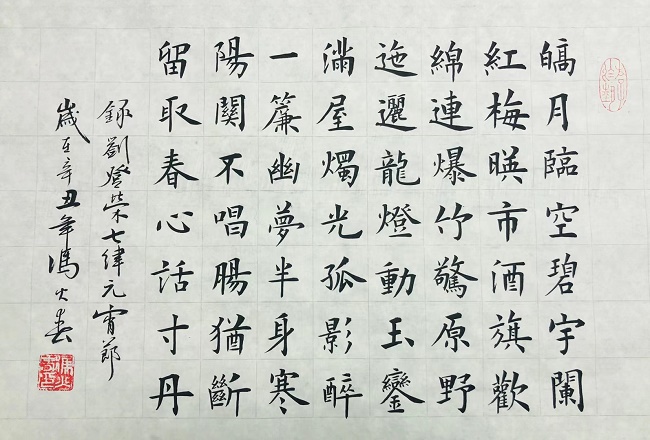 皜月臨空碧宇闌
紅梅暎市酒旗歡
綿連爆竹驚原野
迤邐龍燈動玉鑾
滿屋燭光孤影醉
一簾幽夢半身寒
陽關不唱腸猶斷
留取春心話寸丹
錄劉登榮七律元宵節
歲在辛丑年馮火春